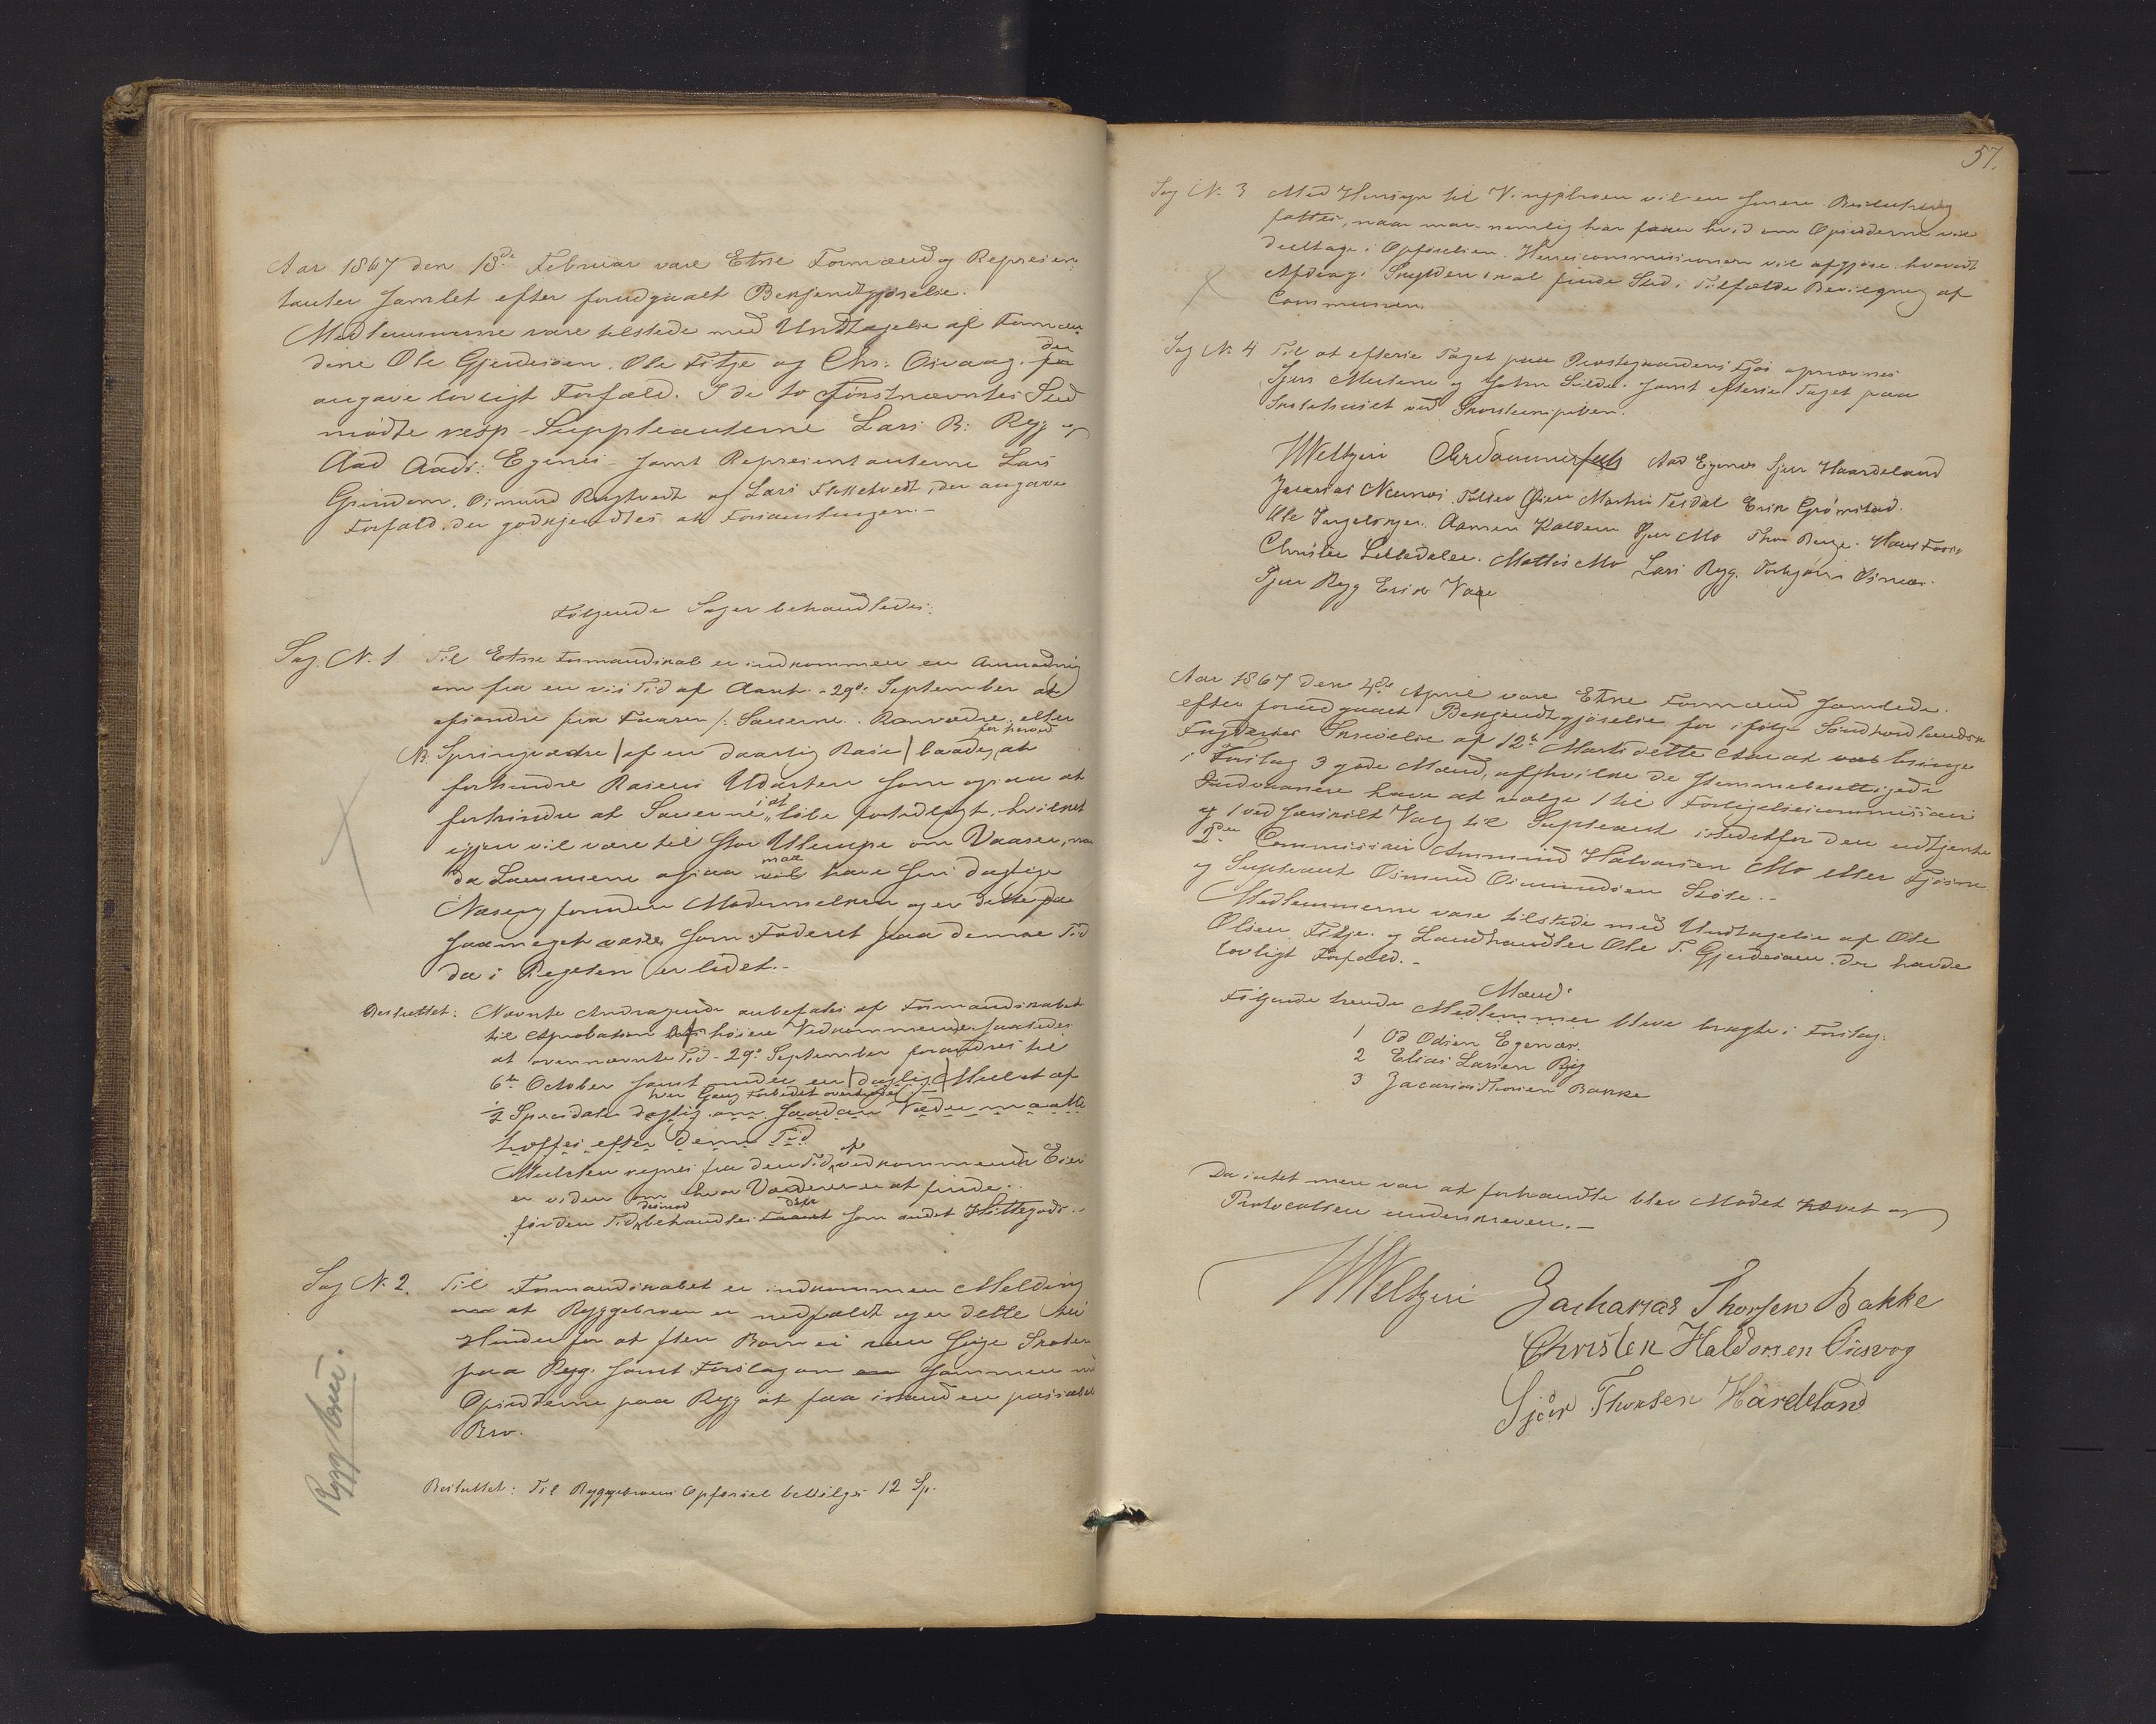 Aar 1867 den 13de Februar vare Etne Formænd og Represen-
tanter samlet efter forudgaaet Bekjendtgjørelse.
Medlemmerne vare tilstede med Undtagelse af Formæn
dene Ole Gjerdesøen. Ole Fitje og Chr: Øsvaag. der
angave lovligt Forfald. I de to førstnævntes Sted
mødte resp Suppleanterne Lars B: Rygg og
Aad Aads: Egenes samt Representanterne Lars
Grindem, Osmund Rygtvedt og Lars Flettetvedt, der angave
Forfald, der godkjendtes af Forsamlingen.-
Følgende Sager behandledes:
Sag N. 1 Til Etne Formandskab er indkommen en Anmodning
om fra en vis Tid af Aaret - 29de September at
afsondre fra Faaren /: Sauerne. Ranvædre eller
NB. Springvædre / af en daarlig Rase / baade for herved at
forhindre Rasens Udarten som ogsaa at
forhindre at Sauerne i at løbe fortidligt, hvilket
igjen vil være til stor Ulempe om Vaaren, naar
da Lammene ogsaa maa have sin daglige
Næring foruden Modermelken og er dette
saameget værre som Foderet paa denne Tid
da i Regelen er lidet.-
Besluttet: Nævnte Andragende anbefales af Formandskabet
til Aprobation af høiere Vedkommende saaledes
at ovennævnte Tid - 29de September forandres til
6te October samt under en / daglig / Mulct af
hver Gang Forbudet overtrædes
1/2 Speciedaler daglig om saadan Væder maatte
træffes efter denne Tid
Mulcten regnes fra den Tid af vedkommende Eier
er viden om hvor Væderen er at finde.
før den Tid derimod behandles disse som andet Hittegods.-
Sag N. 2. Til Formandskabet er indkommen Melding
om at Ryggebroen er nedfaldt og er dette til
Hinder for at flere Børn ei kan søge Skolen
paa Rygg. samt Forslag om sammen med
Opsidderne paa Rygg at faa istand en passabel
Bro.
Ryggbroen.
Besluttet: Til Ryggebroens Opførsel bevilges 12 Sp.
57.
Sag N. 3 Med Hensyn til V. ngebroen vil en senere Beslutning
fattes, naar man nemlig har hvid om Opsidderne vil
deeltage i Opførselen. Herredscommissionen vil afgjøre hvorvidt
Afdrag i Skylden skal finde Sted i Tilfælde Bevilgning af
Communen.
Sag N. 4 Til at eftersee Taget paa Præstegaardens Fjøs opnævnes
Sjur Mesterne og John Silde. samt eftersee Taget paa
Skolehuset ved Skorsteenspiben.
WWeltzin Chr Sommerfelt Aad Egenes Sjur Haardeland
Zacarias Næmnes Tollev Øien Martin Tesdal Erik Grønstad.
Ole Ingelsgjer. Aamen Kaldem Sjur Mo Thor Berge. Hans Fosse
Christen Lilledalen. Mattis Mo Lars Rygg. Torbjørn Osnæs.
Sjur Rygg Erik Vaae
Aar 1867 den 4de April vare Etne Formænd samlede.
efter forudgaaet Bekjendtgjørelse for ifølge Søndhordlands
Fogderies Skrivelse af 12te Marts dette Aar at bringe
i Forslag 3 gode Mænd, af hvilke de stemmeberettigede
Indvaanere have at vælge 1 til Forligelsescommissair
og 1 ved særskilt Valg til Supleant istedetfor den udtjente
2den Commissair Ammund Halvorsen Mo eller Fjøsne
og Supleant Osmund Osmundsen Støle.-
Medlemmerne vare tilstede med Undtagelse af Ole
Olsen Fitje. og Landhandler Ole T. Gjerdesøen. der havde
lovligt Forfald.-
Følgende trende Mænd Medlemmer bleve bragte i Forslag:
1 Od Odsen Egenæs.
2 Elias Larsen Rygg
3 Zacarias Thorsen Bakke
Da intet mere var at forhandle blev Mødet hævet og
Protocollen underskreven.-
WWeltzin Zacharias Thorsen Bakke
Christen Haldorsen Øiesvog
Sjør Thorsen Hardeland